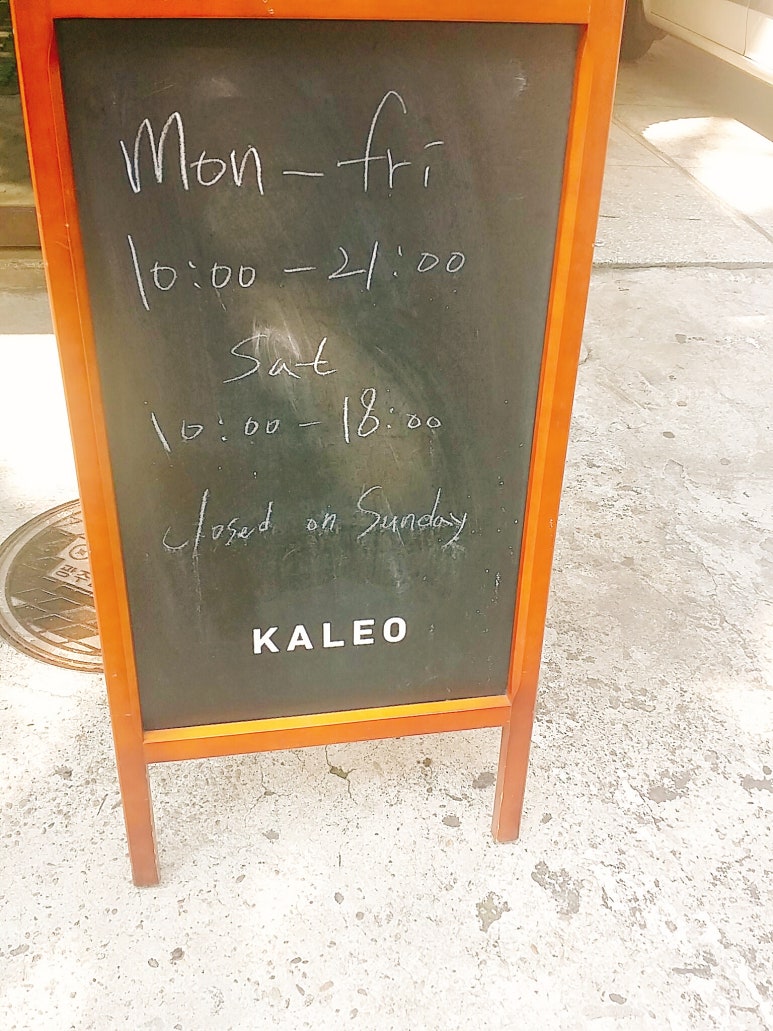 Mon - fri
10:00 - 21:00
Sat
10:00 - 18:00
closed on Sunday
KALEO
광주